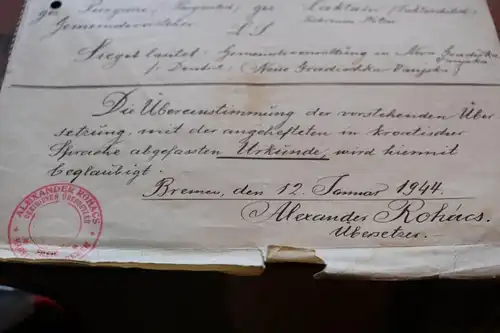 Gemeindevorsteher
L S
Siegel lautet: Gemeindeverwaltung in Nova Gradiška
/: Deutsch: Neue Gradischka
Die Übereinstimmung der vorstehenden Über
setzung, mit der angehefteten in kroatischer
Sprache abgefassten Urkunde, wird hiermit
beglaubigt.
Bremen, den 12. Januar 1944.
Alexander Rohács.
Übersetzer.
ALEXANDER ROHACS